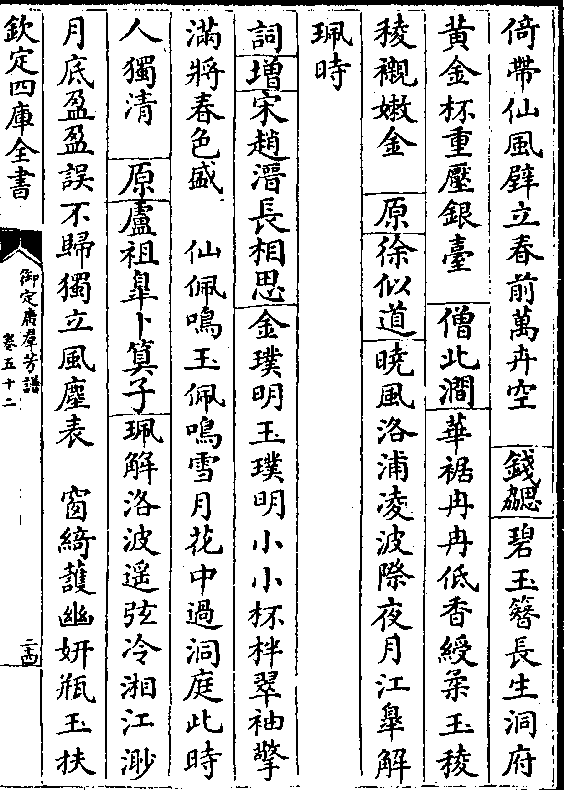 倚帶仙風壁立春前萬卉空　錢勰碧玉簪長生洞府
黃金杯重壓銀臺　僧北澗華裾冉冉低香綬柔玉稜
稜襯嫩金　原徐似道曉風洛浦凌波際夜月江臯解
珮時
詞增宋趙溍長相思金璞明玉璞明小小杯柈翠袖擎
滿將春色盛　仙佩鳴玉佩鳴雪月花中過洞庭此時
人獨清　原盧祖臯卜算子珮解洛波遥弦冷湘江渺
月底盈盈誤不歸獨立風塵表　窗綺護幽妍瓶玉扶
欽定四庫全書
御定廣羣芳譜
卷五十二
二四